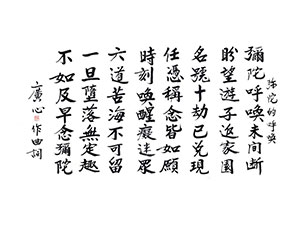 弥陀的呼唤
彌陀呼喚未间断
盼望遊子返家園
名號十劫已兑現
任憑稱念皆如願
時刻喚醒癡迷眾
六道苦海不可留
一旦墮落無定趣
不如及早念彌陀
廣心作曲詞